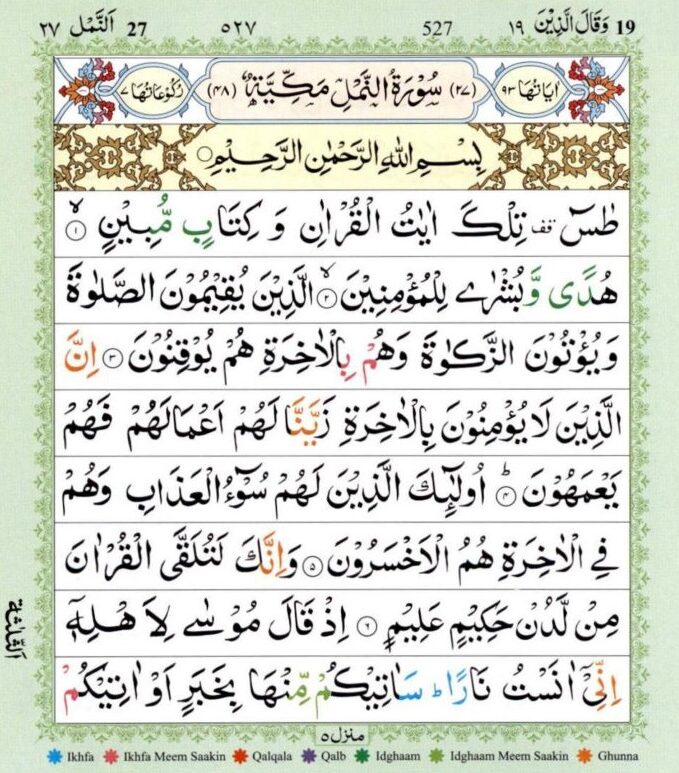 19 وَقَالَ الَّذِيْنَ ١٩ 527 ٥٢٧ 27 اَلنَّمْل ٢٧
اٰيَاتُهَا ٩٣ (٢٧) سُوْرَةُ النَّمْلِ مَكِّيَّةٌ (٤٨) رُكُوْعَاتُهَا ٧
بِسْمِ اللّٰهِ الرَّحْمٰنِ الرَّحِيْمِ
طٰسٓ قف تِلْكَ اٰيٰتُ الْقُرْاٰنِ وَ كِتَابٍ مُّبِيْنٍ ۙ ١
هُدًى وَّبُشْرٰى لِلْمُؤْمِنِيْنَ ۙ ٢ الَّذِيْنَ يُقِيْمُوْنَ الصَّلٰوةَ
وَيُؤْتُوْنَ الزَّكٰوةَ وَهُمْ بِالْاٰخِرَةِ هُمْ يُوْقِنُوْنَ ٣ اِنَّ
الَّذِيْنَ لَا يُؤْمِنُوْنَ بِالْاٰخِرَةِ زَيَّنَّا لَهُمْ اَعْمَالَهُمْ فَهُمْ
يَعْمَهُوْنَ ؕ ٤ اُولٰٓئِكَ الَّذِيْنَ لَهُمْ سُوْٓءُ الْعَذَابِ وَهُمْ
فِي الْاٰخِرَةِ هُمُ الْاَخْسَرُوْنَ ٥ وَاِنَّكَ لَتُلَقَّى الْقُرْاٰنَ
مِنْ لَّدُنْ حَكِيْمٍ عَلِيْمٍ ٦ اِذْ قَالَ مُوْسٰى لِاَهْلِهٖٓ
اِنِّيْٓ اٰنَسْتُ نَارًا ؕ سَاٰتِيْكُمْ مِّنْهَا بِخَبَرٍ اَوْ اٰتِيْكُمْ
الثلثة
منزل ٥
Ikhfa Ikhfa Meem Saakin Qalqala Qalb Idghaam Idghaam Meem Saakin Ghunna